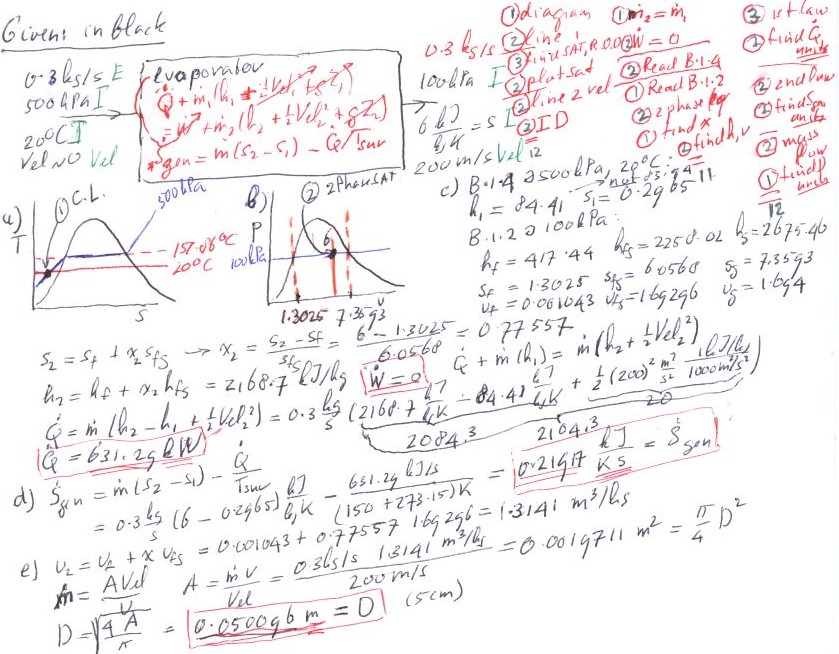 Given: in black
0.3 kg/s E
500 kPa I
20°C I
Vel ≈ 0 Vel
evaporator
Q̇ + ṁ₁(h₁ + ½Vel₁² + gZ₁)
= Ẇ + ṁ₂(h₂ + ½Vel₂² + gZ₂)
Ṡgen = ṁ(s₂ - s₁) - Q̇/Tsurr
0.3 kg/s
100 kPa I
6 kJ/kgK = s I
200 m/s Vel 12
① diagram
② line 1
③ find SAT, R.O.O
② plot sat
② line 2 vel
② ID
① ṁ₂ = ṁ₁
② Ẇ = 0
② Read B.1.4
① Read B.1.2
② 2 phase eq
① find x
② find h, v
③ 1st law
② find Q̇, units
② 2nd law
② find Sgen units
② mass flow
① find D units
12
a) T
① C.L.
500 kPa
151.86°C
20°C
s
b) P
② 2 Phase SAT
100 kPa
6
1.3025 7.3593
c) B.1.4 @ 500 kPa, 20°C:
h₁ = 84.41 s₁ = 0.2965 11
B.1.2 @ 100 kPa:
hf = 417.44 hfg = 2258.02 hg = 2675.46
sf = 1.3025 sfg = 6.0568 sg = 7.3593
vf = 0.001043 vfg = 1.69296 vg = 1.694
s₂ = sf + x₂sfg → x₂ = (s₂ - sf)/sfg = (6 - 1.3025)/6.0568 = 0.77557
h₂ = hf + x₂hfg = 2168.7 kJ/kg Ẇ = 0 Q̇ + ṁ(h₁) = ṁ(h₂ + ½Vel₂²)
Q̇ = ṁ(h₂ - h₁ + ½Vel₂²) = 0.3 kg/s (2168.7 kJ/kgK - 84.41 kJ/kgK + ½(200)² m²/s² 1kJ/kg/1000m²/s²)
2084.3 20
2104.3
Q̇ = 631.29 kW
d) Ṡgen = ṁ(s₂ - s₁) - Q̇/Tsurr
= 0.3 kg/s (6 - 0.2965) kJ/kgK - 631.29 kJ/s/(150 + 273.15)K = 0.21917 kJ/Ks = Ṡgen
e) v₂ = vf + x vfg = 0.001043 + 0.77557 1.69296 = 1.3141 m³/kg
ṁ = AVel/v A = ṁv/Vel = 0.3kg/s 1.3141 m³/kg/200 m/s = 0.0019711 m² = π/4 D²
D = √(4A/π) = 0.050096 m = D (5cm)